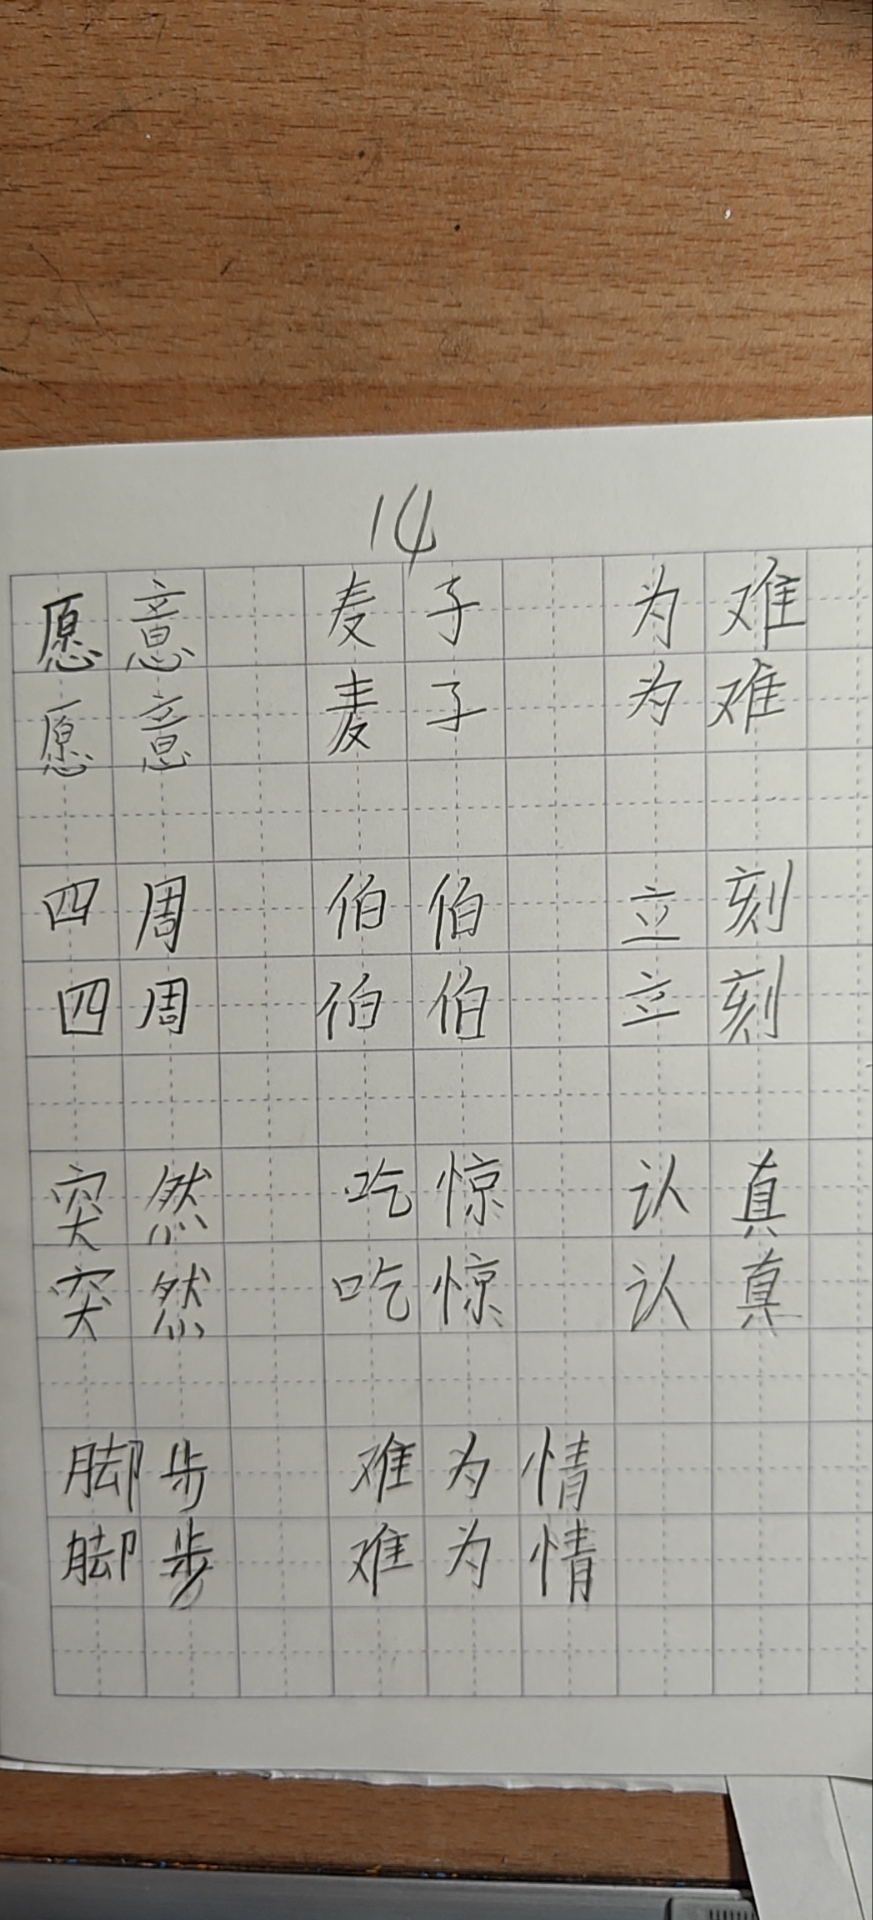 14
愿意 麦子 为难
愿意 麦子 为难
四周 伯伯 立刻
四周 伯伯 立刻
突然 吃惊 认真
突然 吃惊 认真
脚步 难为情
脚步 难为情